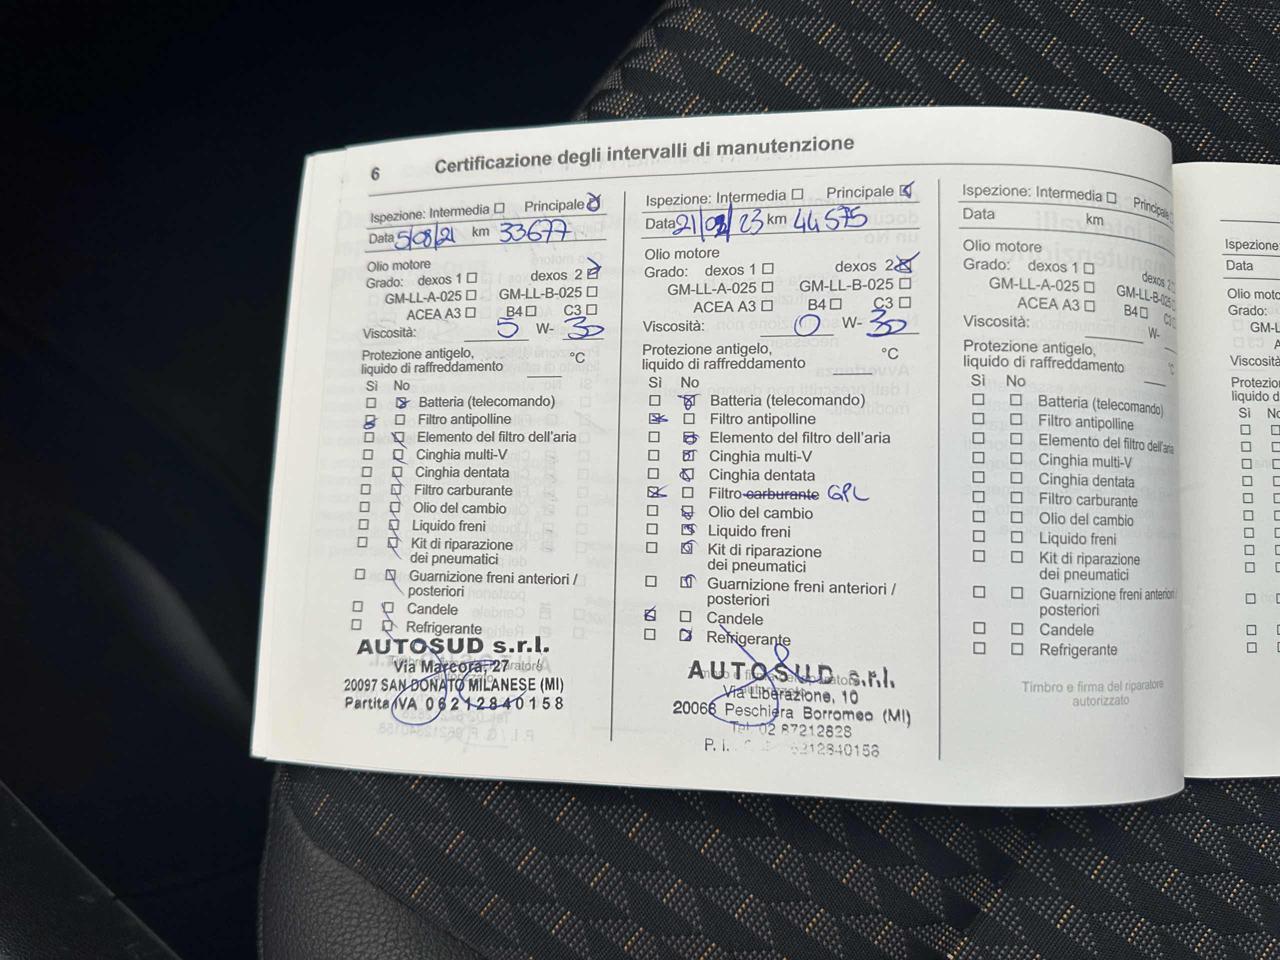 6
Certificazione degli intervalli di manutenzione
Ispezione: Intermedia Principale
Data 5/08/21 km 33677
Olio motore
Grado: dexos 1 dexos 2
GM-LL-A-025 GM-LL-B-025
ACEA A3 B4 C3
Viscosità: 5 W- 30
Protezione antigelo, °C
liquido di raffreddamento
Sì No
Batteria (telecomando)
Filtro antipolline
Elemento del filtro dell'aria
Cinghia multi-V
Cinghia dentata
Filtro carburante
Olio del cambio
Liquido freni
Kit di riparazione
dei pneumatici
Guarnizione freni anteriori /
posteriori
Candele
Refrigerante
AUTOSUD s.r.l.
Via Marcora, 27
20097 SAN DONATO MILANESE (MI)
Partita IVA 06212840158
Ispezione: Intermedia Principale
Data 21/02/23 km 44575
Olio motore
Grado: dexos 1 dexos 2
GM-LL-A-025 GM-LL-B-025
ACEA A3 B4 C3
Viscosità: 0 W- 30
Protezione antigelo, °C
liquido di raffreddamento
Sì No
Batteria (telecomando)
Filtro antipolline
Elemento del filtro dell'aria
Cinghia multi-V
Cinghia dentata
Filtro carburante GPL
Olio del cambio
Liquido freni
Kit di riparazione
dei pneumatici
Guarnizione freni anteriori /
posteriori
Candele
Refrigerante
AUTOSUD s.r.l.
Via Liberazione, 10
20068 Peschiera Borromeo (MI)
Tel. 02 87212828
P. i. 6212840158
Ispezione: Intermedia Principale
Data km
Olio motore
Grado: dexos 1 dexos 2
GM-LL-A-025 GM-LL-B-025
ACEA A3 B4 C3
Viscosità: W-
Protezione antigelo, °C
liquido di raffreddamento
Sì No
Batteria (telecomando)
Filtro antipolline
Elemento del filtro dell'aria
Cinghia multi-V
Cinghia dentata
Filtro carburante
Olio del cambio
Liquido freni
Kit di riparazione
dei pneumatici
Guarnizione freni anteriori /
posteriori
Candele
Refrigerante
Timbro e firma del riparatore
autorizzato
Ispezione
Data
Olio moto
Grado:
GM-L
Viscosità
Protezion
liquido di
Sì No